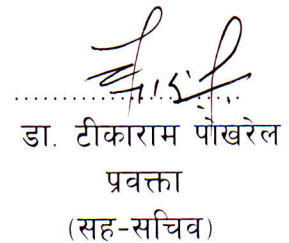 डा. टीकाराम पोखरेल
प्रवक्ता
(सह-सचिव)